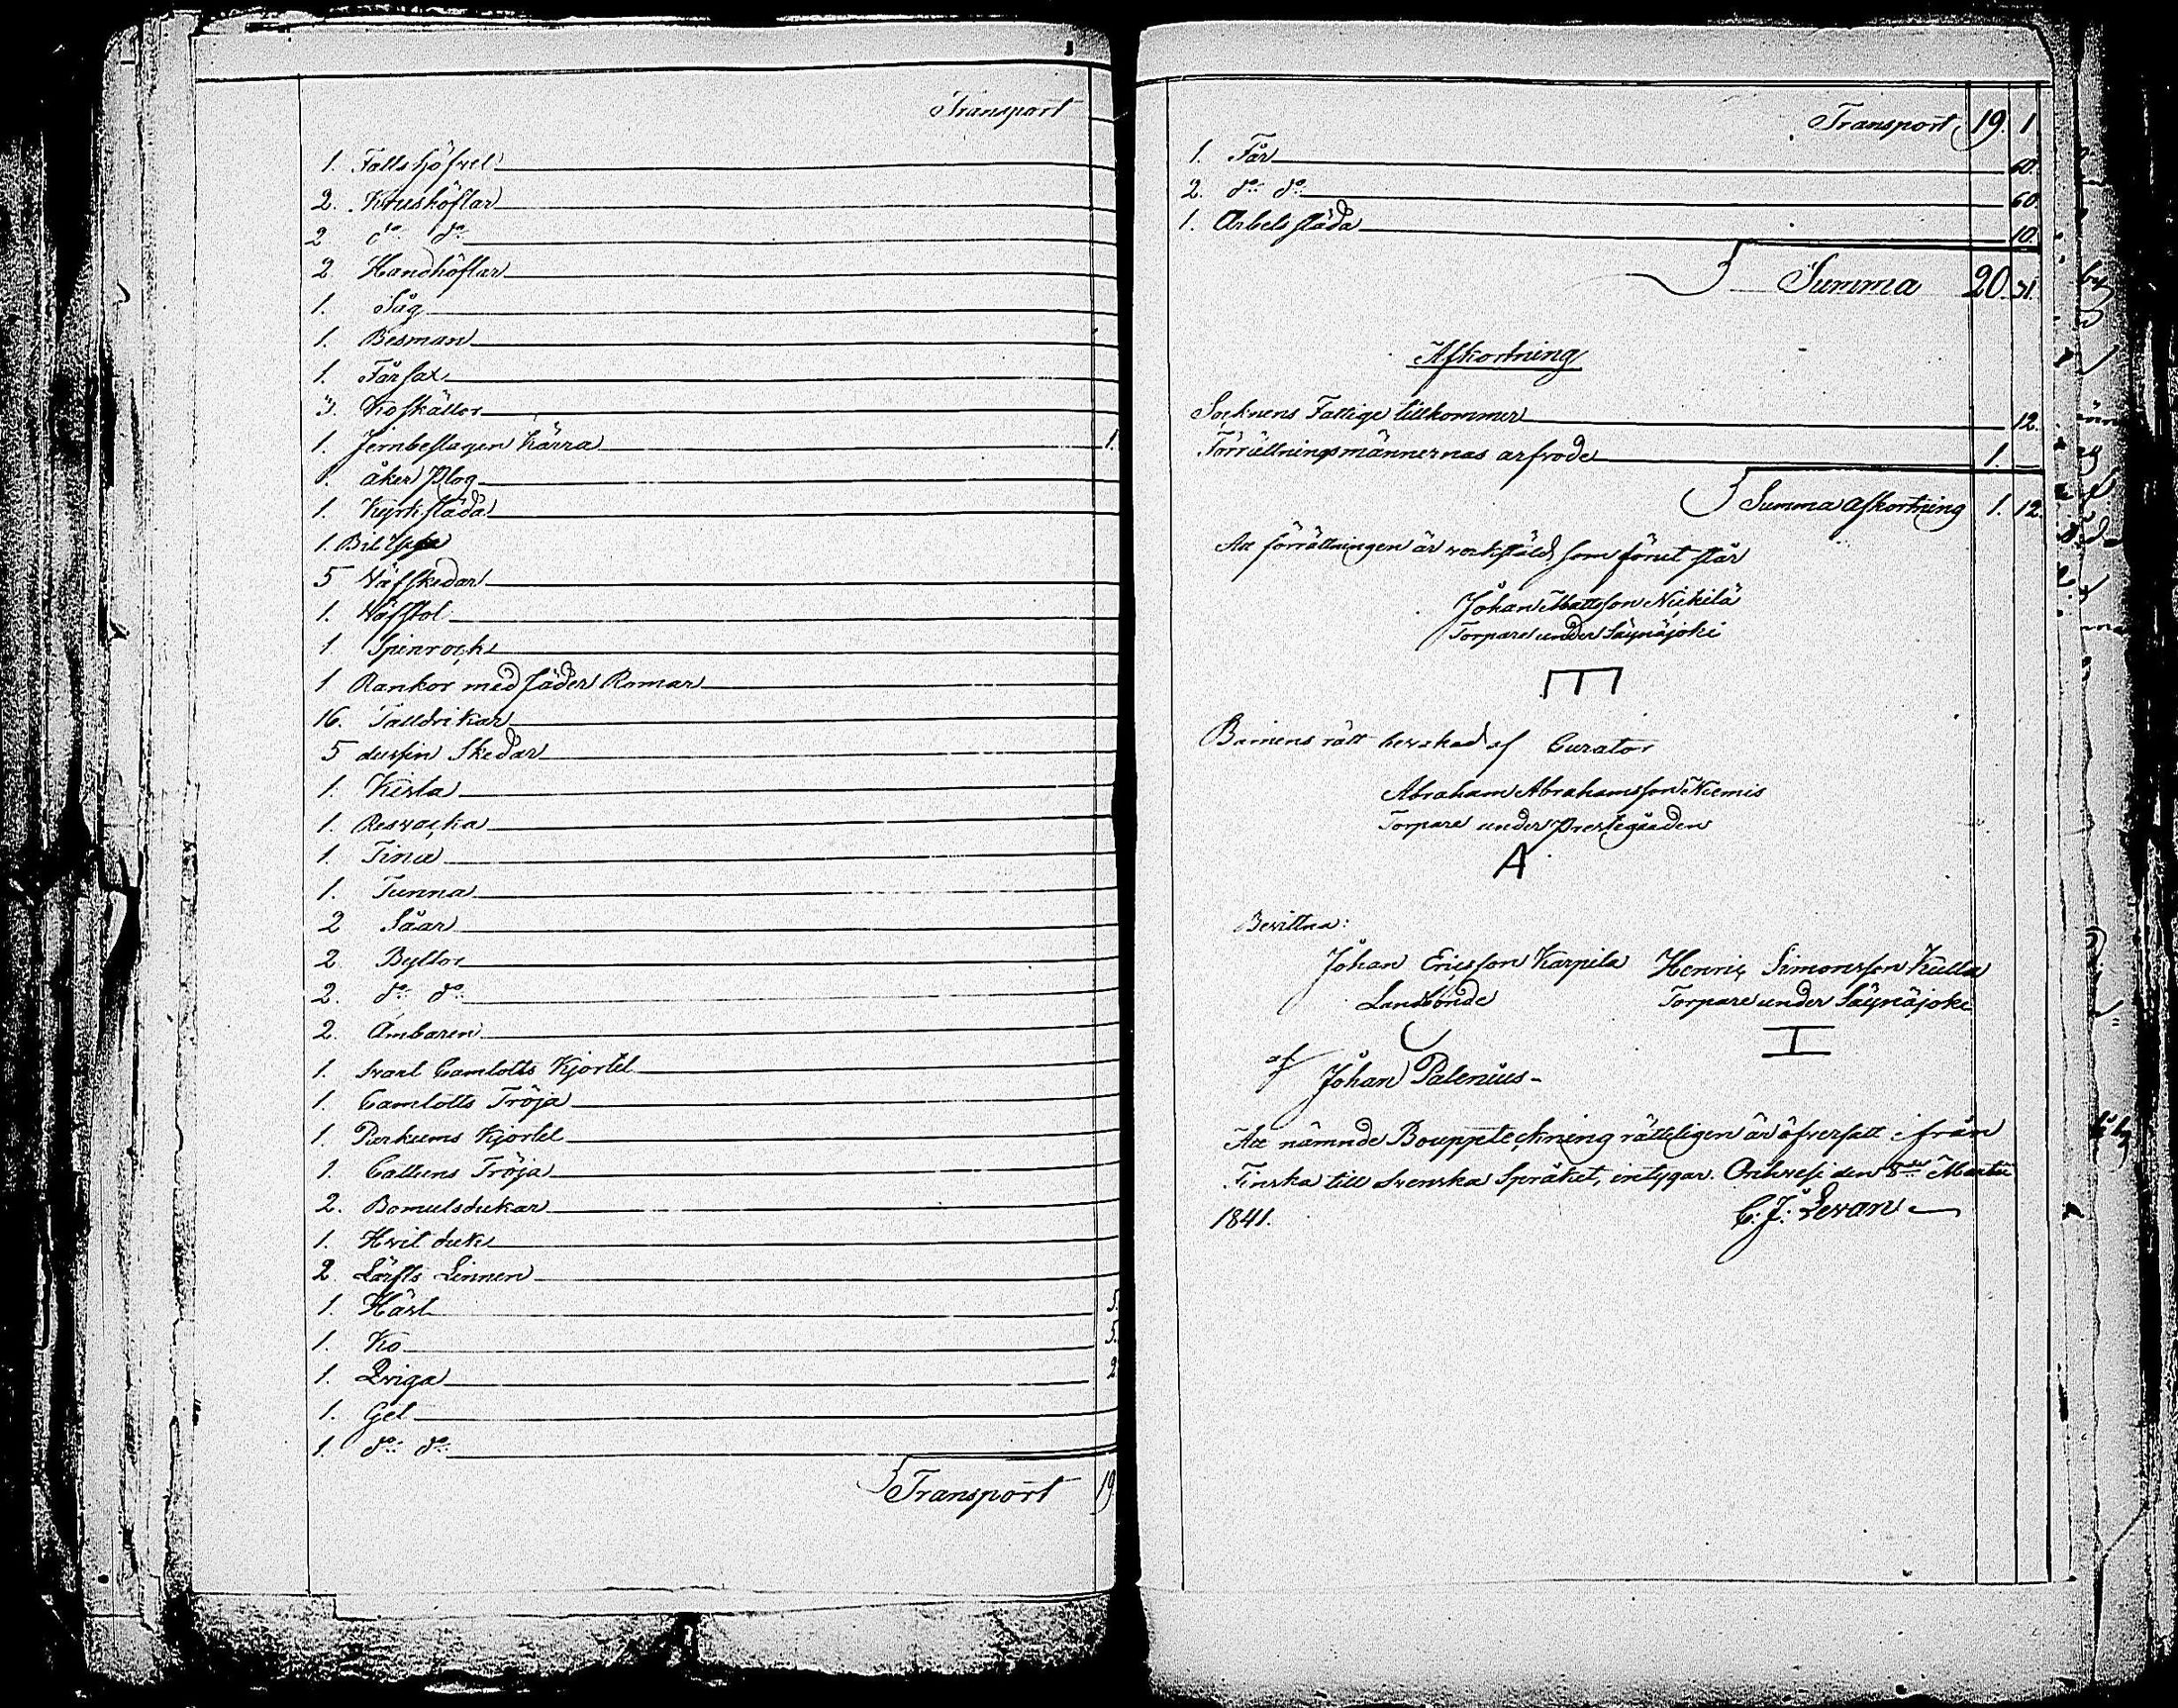 Transport
1. Falls höfvel
2. Krushöflar
2 do do
2 Handhöflar
1. Såg
1. Besman
1. Fårsax
3. Koskällor
1. Jernbeslagen Kärra 1.
1. åker Plog
1. Kyrksläda
1. Bil
5 Väfskedar
1. Väfstol
1 Spinrock
1 Rankor med läder Romar
16. Talldrikar
5 dussin Skedar
1. Kista
1. Resvacka
1. Tina
1. Tunna
2 Såar
2. Byttor
2. do do
2. Ämbaren
1. Svart Camlotts Kjortel
1. Camlotts Tröja
1. Parkums Kjortel
1. Cattuns Tröja
2. Bomulsdukar
1. Hvit duk
2. Lärfts Linnen
1. Häst 5.
1. Ko 5.
1. Qviga 2
1. Get
1. do do
Transport 19
Transport 19. 1
1. Får 60.
2. do do 60.
1. Arbets släda 10.
Summa 20. 31.
Afkortning
Socknens Fattige tillkommer 12.
Förrättningsmännernas arfvode 1.
Summa Afkortning 1. 12.
Att förrättningen är verkstäld som förut står
Johan Mattsson Nickilä
Torpare under Säynäjoki
Barnens rätt bevakad af Curator
Abraham Abrahamsson Niemis
Torpare under Prestegården
A
Bevittna:
Johan Ericsson Karpila Henric Simonsson Kulla
Landbonde Torpare under Säynäjoki
af Johan Palenius
Att nämnde Bouppteckning rätteligen är öfversatt ifrån
Finska till Svenska Språket, intygar. Orihvesi den 8de Martii
1841. C. J. Levan